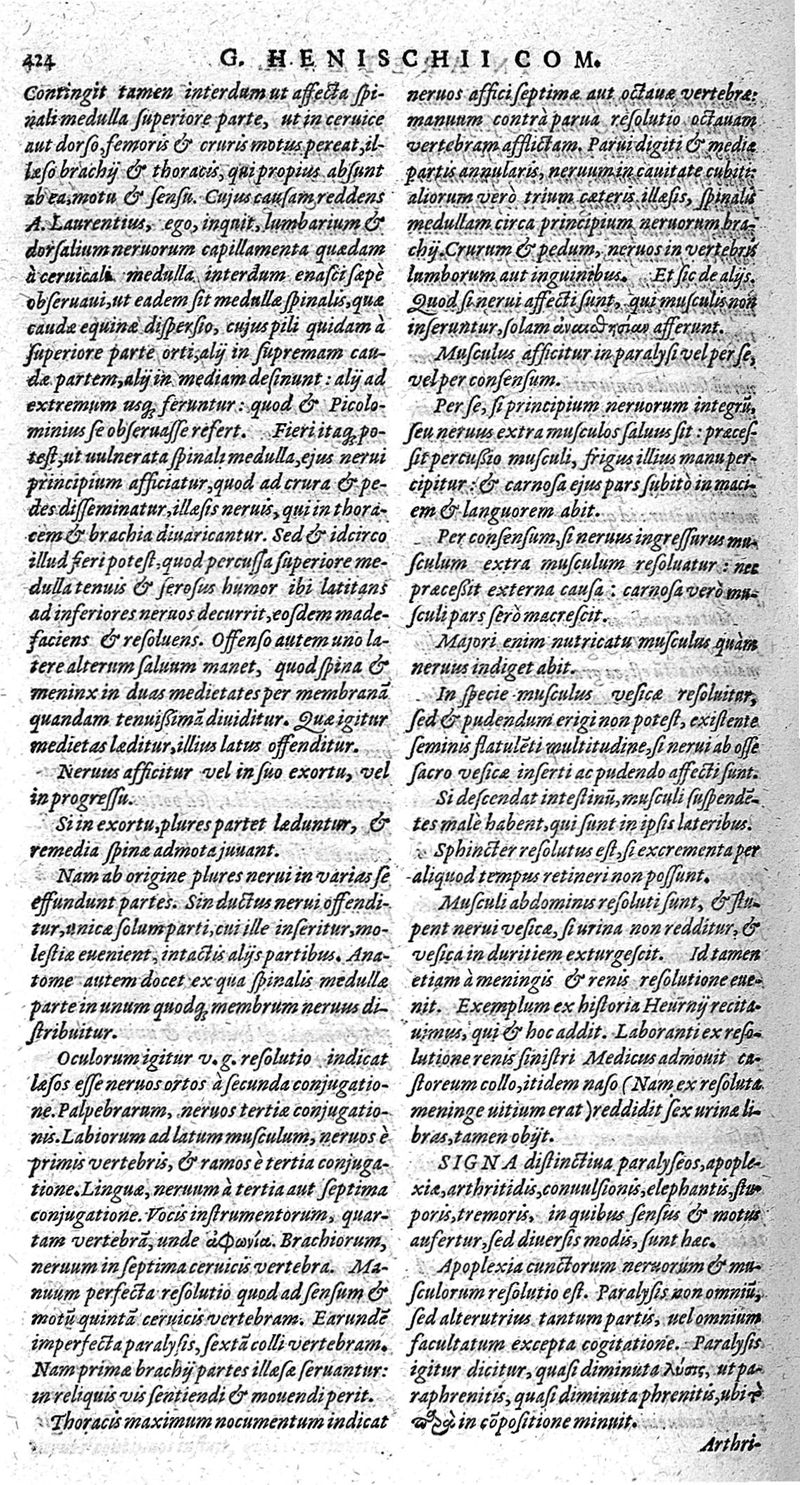 424
G. HENISCHII COM.
Contingit tamen interdum ut affecta ſpi-
nali medulla ſuperiore parte, ut in ceruice
aut dorſo, femoris & cruris motus pereat, il-
læſo brachij & thoracis, qui propius abſunt
ab ea, motu & ſenſu. Cujus cauſam, reddens
A. Laurentius, ego, inquit, lumbarium &
dorſalium neruorum capillamenta quædam
à ceruicali medulla interdum enaſci ſæpè
obſeruaui, ut eadem ſit medullæ ſpinalis, quæ
caudæ equinæ diſperſio, cujus pili quidam à
ſuperiore parte orti, alij in ſupremam cau-
dæ partem, alij in mediam deſinunt: alij ad
extremum usq; feruntur: quod & Picolo-
minius ſe obſeruaſſe refert. Fieri itaq; po-
teſt, ut uulnerata ſpinali medulla, ejus nerui
principium afficiatur, quod ad crura & pe-
des diſſeminatur, illæſis neruis, qui in thora-
cem & brachia diuaricantur. Sed & idcirco
illud fieri poteſt, quod percuſſa ſuperiore me-
dulla tenuis & ſeroſus humor ibi latitans
ad inferiores neruos decurrit, eoſdem made-
faciens & reſoluens. Offenſo autem uno la-
tere alterum ſaluum manet, quod ſpina &
meninx in duas medietates per membranã
quandam tenuißimã diuiditur. Quæ igitur
medietas læditur, illius latus offenditur.
Neruus afficitur vel in ſuo exortu, vel
in progreſſu.
Si in exortu, plures partet læduntur, &
remedia ſpinæ admota juuant.
Nam ab origine plures nerui in varias ſe
effundunt partes. Sin ductus nerui offendi-
tur, unicæ ſolum parti, cui ille inſeritur, mo-
leſtiæ euenient, intactis alijs partibus. Ana-
tome autem docet ex qua ſpinalis medullæ
parte in unum quodq; membrum neruus di-
ſtribuitur.
Oculorum igitur v. g. reſolutio indicat
læſos eſſe neruos ortos à ſecunda conjugatio-
ne. Palpebrarum, neruos tertiæ conjugatio-
nis. Labiorum ad latum muſculum, neruos è
primis vertebris, & ramos è tertia conjuga-
tione. Linguæ, neruum à tertia aut ſeptima
conjugatione. Vocis inſtrumentorum, quar-
tam vertebrã, unde ἀφωνία. Brachiorum,
neruum in ſeptima ceruicis vertebra. Ma-
nuum perfecta reſolutio quod ad ſenſum &
motũ quintã ceruicis vertebram. Earundẽ
imperfecta paralyſis, ſextã colli vertebram.
Nam primæ brachij partes illæſæ ſeruantur:
in reliquis vis ſentiendi & mouendi perit.
Thoracis maximum nocumentum indicat
neruos affici ſeptimæ aut octauæ vertebræ:
manuum contrà parua reſolutio octauam
vertebram afflictam. Parui digiti & mediæ
partis annularis, neruum in cauitate cubiti:
aliorum verò trium cæteris illæſis, ſpinalis
medullam circa principium neruorum bra-
chij. Crurum & pedum, neruos in vertebris
lumborum aut inguinibus. Et ſic de alijs.
Quod ſi nerui affecti ſunt, qui muſculis non
inſeruntur, ſolam ἀναιϑησίαν afferunt.
Muſculus afficitur in paralyſi vel per ſe,
vel per conſenſum.
Per ſe, ſi principium neruorum integrũ,
ſeu neruus extra muſculos ſaluus ſit: præceſ-
ſit percußio muſculi, frigus illius manu per-
cipitur: & carnoſa ejus pars ſubitò in maci-
em & languorem abit.
Per conſenſum, ſi neruus ingreſſurus mu-
ſculum extra muſculum reſoluatur: nec
præceßit externa cauſa: carnoſa verò mu-
ſculi pars ſerò macreſcit.
Majori enim nutricatu muſculus quàm
neruus indiget abit.
In ſpecie muſculus veſicæ reſoluitur,
ſed & pudendum erigi non poteſt, exiſtente
ſeminis flatulẽti multitudine, ſi nerui ab oſſe
ſacro veſicæ inſerti ac pudendo affecti ſunt.
Si deſcendat inteſtinũ, muſculi ſuſpendẽ-
tes malè habent, qui ſunt in ipſis lateribus.
Sphincter reſolutus eſt, ſi excrementa per
aliquod tempus retineri non poſſunt.
Muſculi abdominus reſoluti ſunt, & ſtu-
pent nerui veſicæ, ſi urina non redditur, &
veſica in duritiem exturgeſcit. Id tamen
etiam à meningis & renis reſolutione eue-
nit. Exemplum ex hiſtoria Heurnij recita-
uimus, qui & hoc addit. Laboranti ex reſo-
lutione renis ſiniſtri Medicus admouit ca-
ſtoreum collo, itidem naſo (Nam ex reſoluta
meninge uitium erat) reddidit ſex urinæ li-
bras, tamen obijt.
SIGNA diſtinctiua paralyſeos, apople-
xiæ, arthritidis, conuulſionis, elephantis, ſtu-
poris, tremoris, in quibus ſenſus & motus
aufertur, ſed diuerſis modis, ſunt hæc.
Apoplexia cunctorum neruorum & mu-
ſculorum reſolutio eſt. Paralyſis non omniũ,
ſed alterutrius tantum partis, uel omnium
facultatum excepta cogitatione. Paralyſis
igitur dicitur, quaſi diminuta λύσις, ut pa-
raphrenitis, quaſi diminuta phrenitis, ubi
in cõpoſitione minuit.
Arthri-